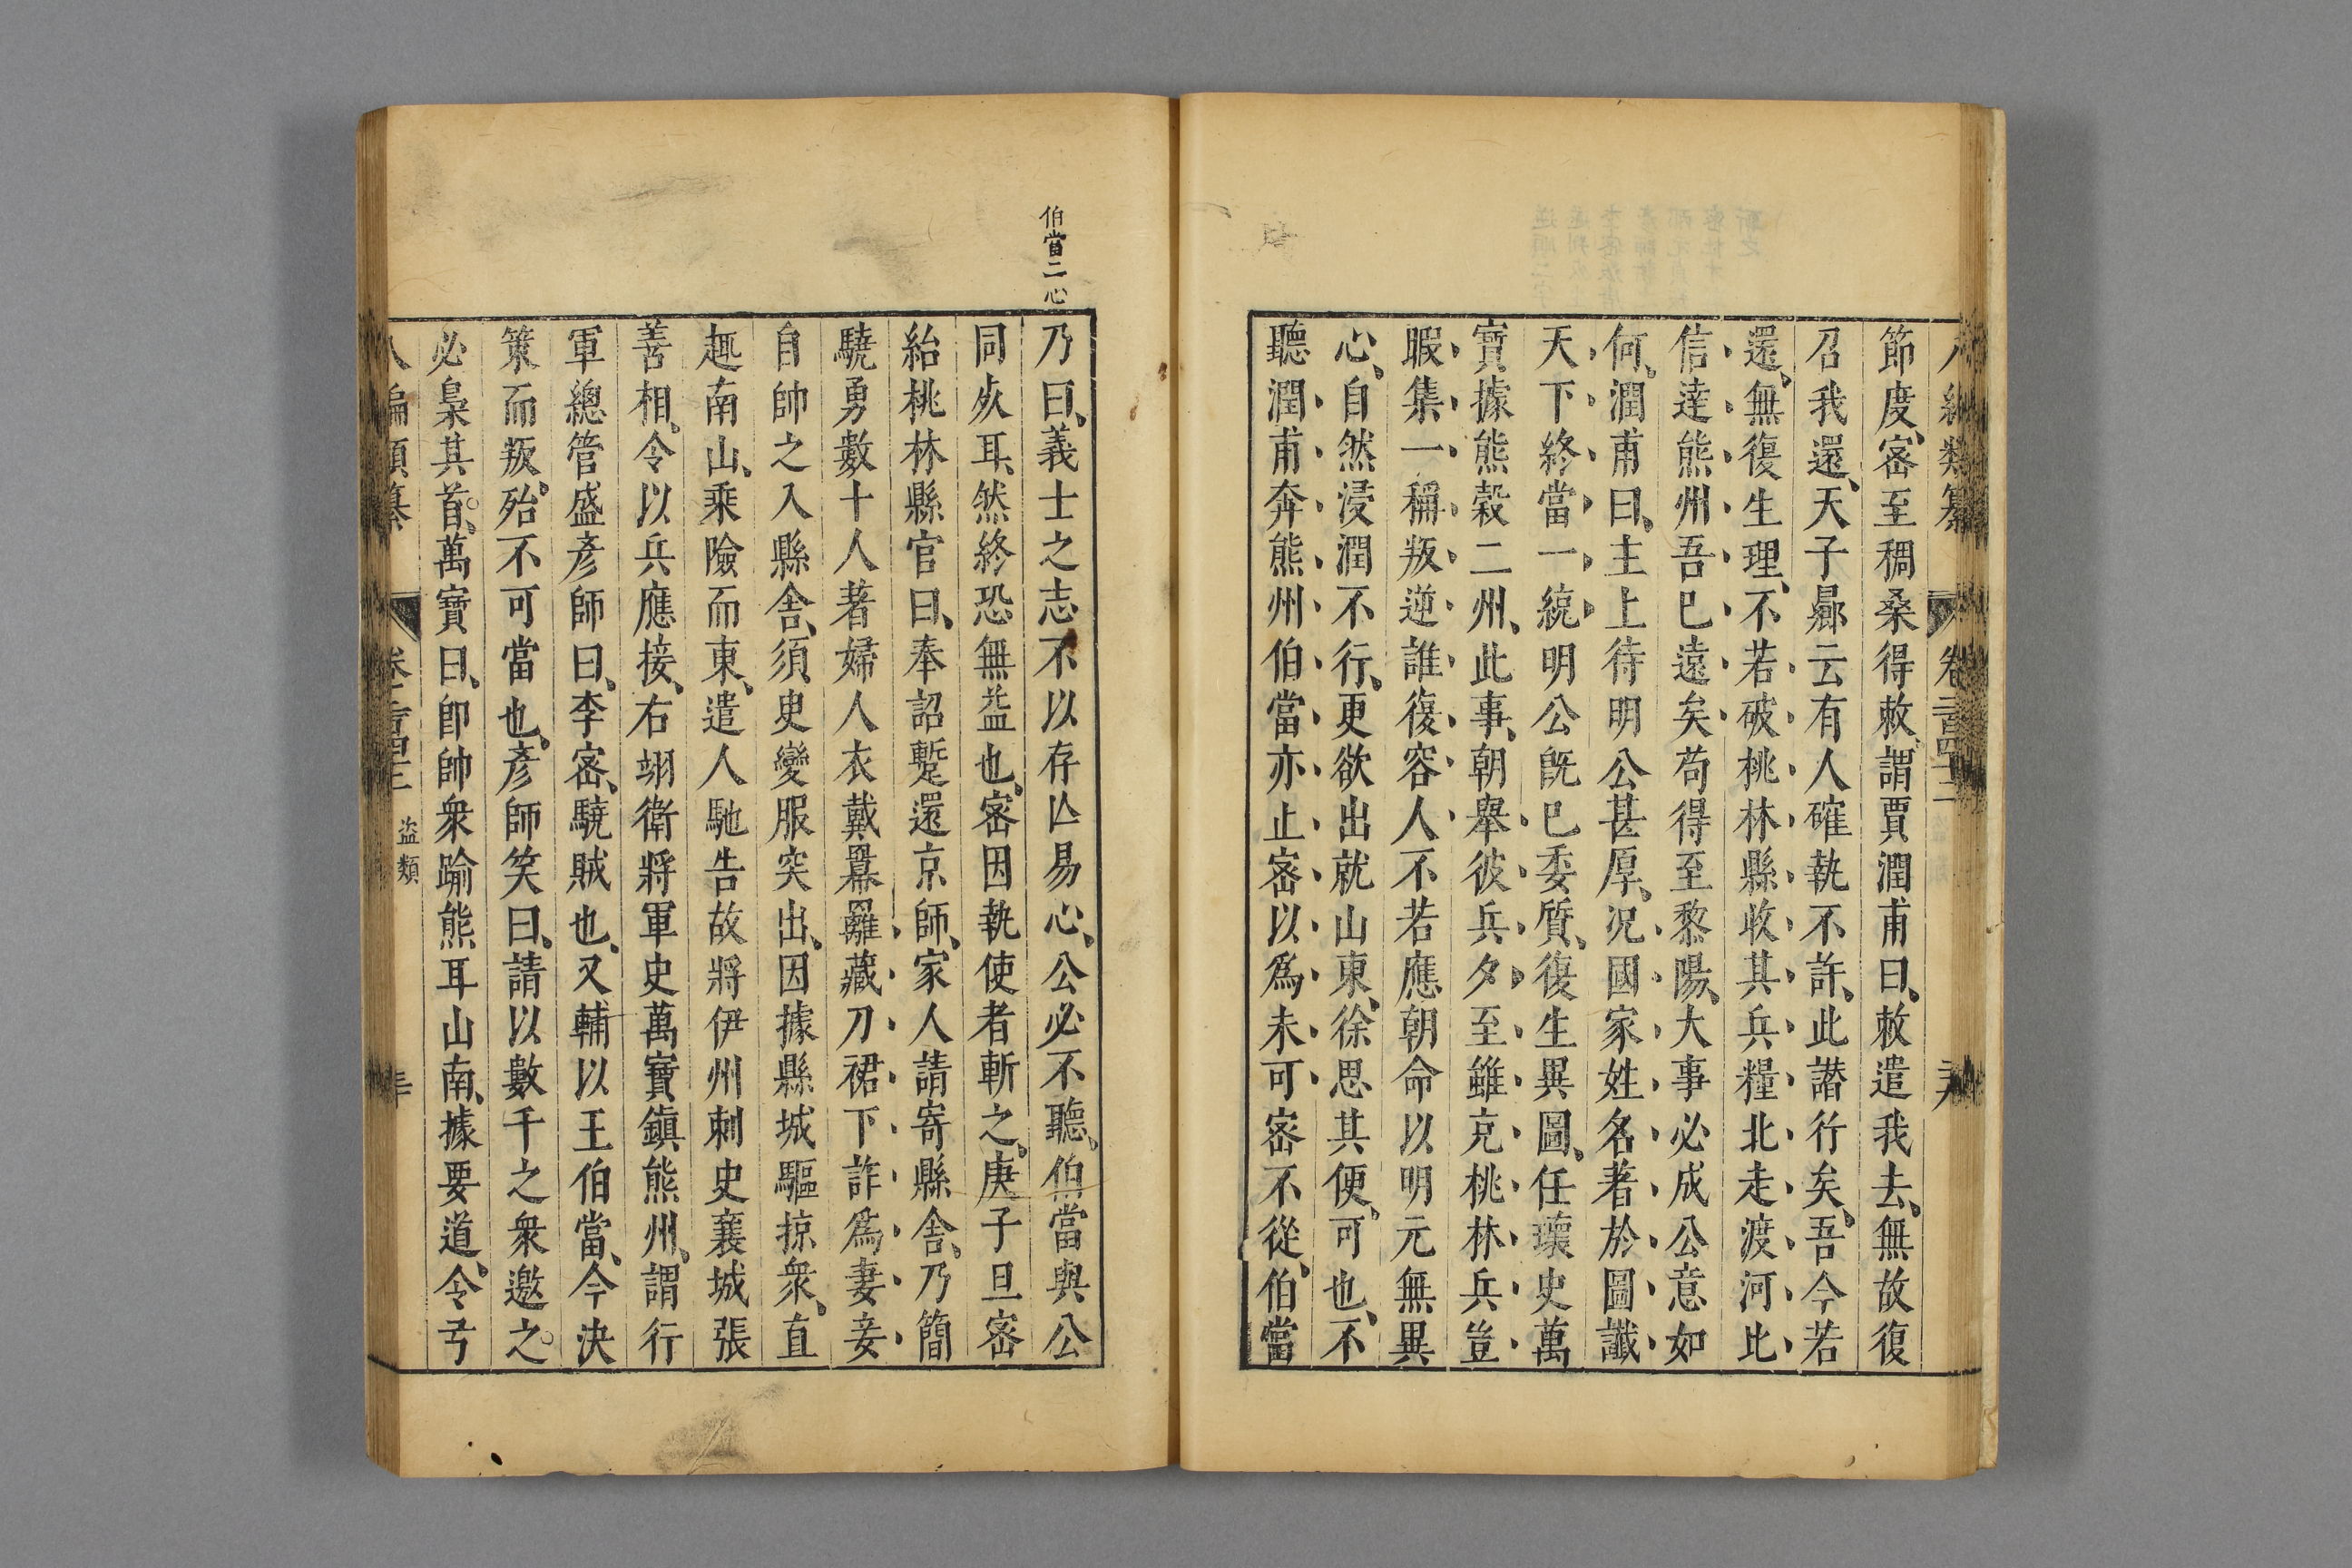 節度、密至稠桑得敕、謂賈潤甫曰、敕遣我去、無故復
召我還、天子曏云有人確執不許、此譖行矣、吾今若
還、無復生理、不若破桃林縣收其兵糧北走渡河比
信達熊州吾巳遠矣苟得至黎陽、大事必成公意如
何、潤甫曰、主上待明公甚厚、况國家姓名著於圖讖
天下終當一統明公旣已委質、復生異圖、任瓌史萬
寶據熊穀二州、此事、朝舉彼兵夕至雖克桃林兵豈
暇集一稱叛逆誰復容人不若應朝命以明元無異
心、自然浸潤不行、更欲出就山東、徐思其便、可也、不
聽潤甫奔熊州伯當亦止密以爲未可密不從、伯當
伯當二心
乃曰、義士之志不以存亾易心、公必不聽、伯當與公
同死耳、然終恐無益也、密因執使者斬之、庚子旦密
紿桃林縣官曰、奉詔蹔還京師、家人請寄縣舍、乃簡
驍勇數十人著婦人衣戴羃䍦藏刀裙下詐爲妻妾
自帥之入縣舍、須臾變服突出、因據縣城驅掠衆、直
趣南山、乘險而東、遣人馳告故將伊州刺史襄城張
善相、令以兵應接、右翊衛將軍史萬寶鎭熊州、謂行
軍總管盛彥師曰、李密、驍賊也、又輔以王伯當、今決
策而叛、殆不可當也、彥師笑曰、請以數千之衆邀之、
必梟其首、萬寶曰、卽帥衆踰熊耳山南、據要道、令弓
盜類